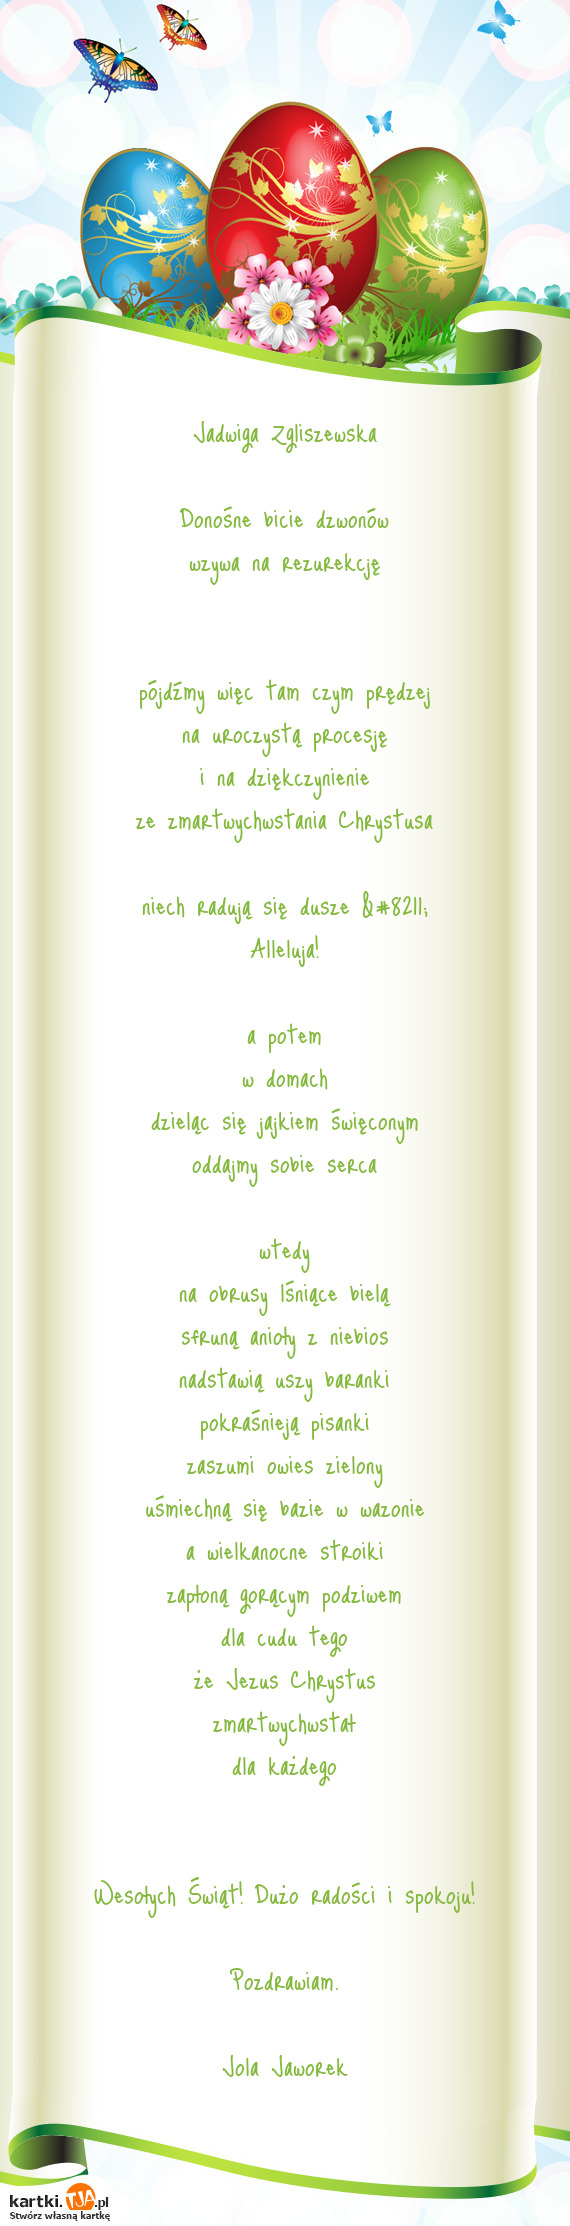 Jadwiga Zgliszewska
Donośne bicie dzwonów
wzywa na rezurekcję
pójdźmy więc tam czym prędzej
na uroczystą procesję
i na dziękczynienie
ze zmartwychwstania Chrystusa
niech radują się dusze &#8211;
Alleluja!
a potem
w domach
dzieląc się jajkiem święconym
oddajmy sobie serca
wtedy
na obrusy lśniące bielą
sfruną anioły z niebios
nadstawią uszy baranki
pokraśnieją pisanki
zaszumi owies zielony
uśmiechną się bazie w wazonie
a wielkanocne stroiki
zapłoną gorącym podziwem
dla cudu tego
że Jezus Chrystus
zmartwychwstał
dla każdego
Wesołych Świąt! Dużo radości i spokoju!
Pozdrawiam.
Jola Jaworek
kartki.TJA.pl
Stwórz własną kartkę